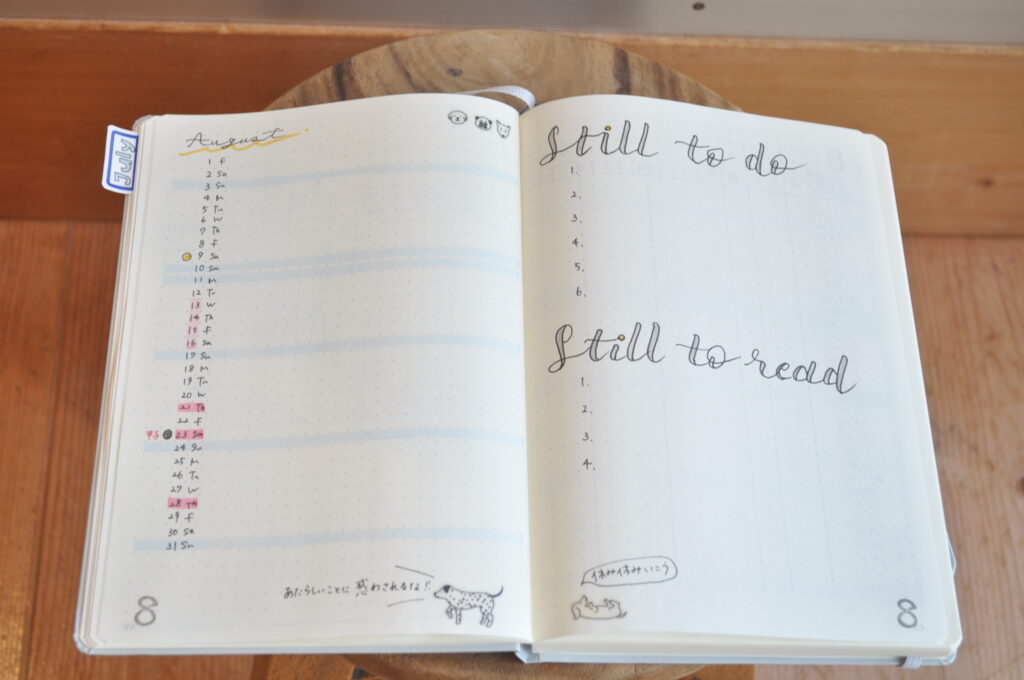 August
1 F
2 Sa
3 Su
4 M
5 Tu
6 W
7 Th
8 F
9 Sa
10 Su
11 M
12 Tu
13 W
14 Th
15 F
16 Sa
17 Su
18 M
19 Tu
20 W
21 Th
22 F
23 Sa
24 Su
25 M
26 Tu
27 W
28 Th
29 F
30 Sa
31 Su
あたらしいことに惑わされるな!!
8
Still to do
1.
2.
3.
4.
5.
6.
Still to read
1.
2.
3.
4.
休み休みいこう
8